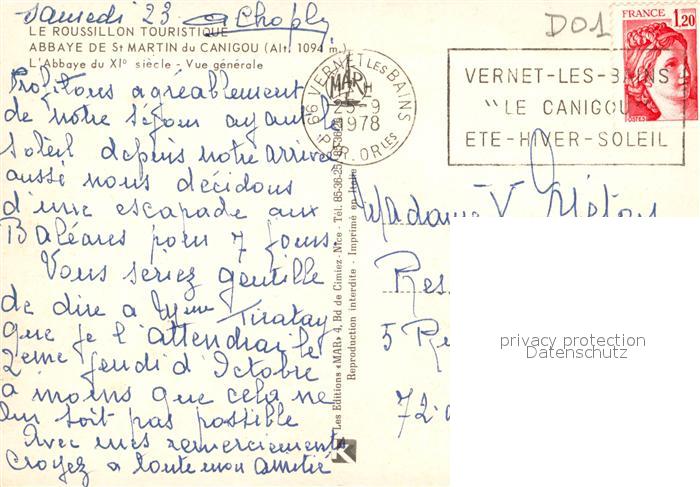 Samedi 23
LE ROUSSILLON TOURISTIQUE
ABBAYE DE St MARTIN du CANIGOU (Alt. 1094 m.)
L'Abbaye du XI° siècle - Vue générale
Profitons agréablement
de notre séjour ayant le
soleil depuis notre arrivée
aussi nous décidons
d'une escapade aux
Baléares pour 7 jours.
Vous seriez gentille
de dire à Mme Tiratay
que je l'attendrai le
2ème jeudi d'Octobre
à moins que cela ne
lui soit pas possible
Avec mes remerciements
Croyez à toute mon amitié
D01
FRANCE
1,20
POSTES
66 VERNET LES BAINS
25-9
1978
PYR. OR LES
VERNET-LES-BAINS
"LE CANIGOU"
ETE-HIVER-SOLEIL
Les Editions «MAR» 4, Bd de Cimiez - Nice - Tél.
Reproduction interdite - Imprimé en Italie
MAR
K
Madame V.
Res
5 Re
72
privacy protection
Datenschutz